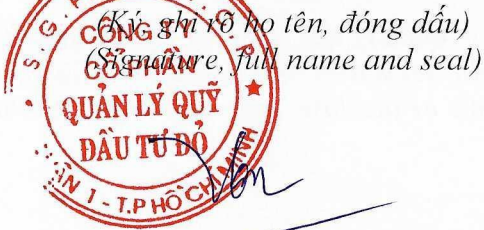 (Ký, ghi rõ họ tên, đóng dấu)
(Signature, full name and seal)
CÔNG TY
CỔ PHẦN
QUẢN LÝ QUỸ
ĐẦU TƯ ĐỎ
1 - T.P HỒ CHÍ MINH